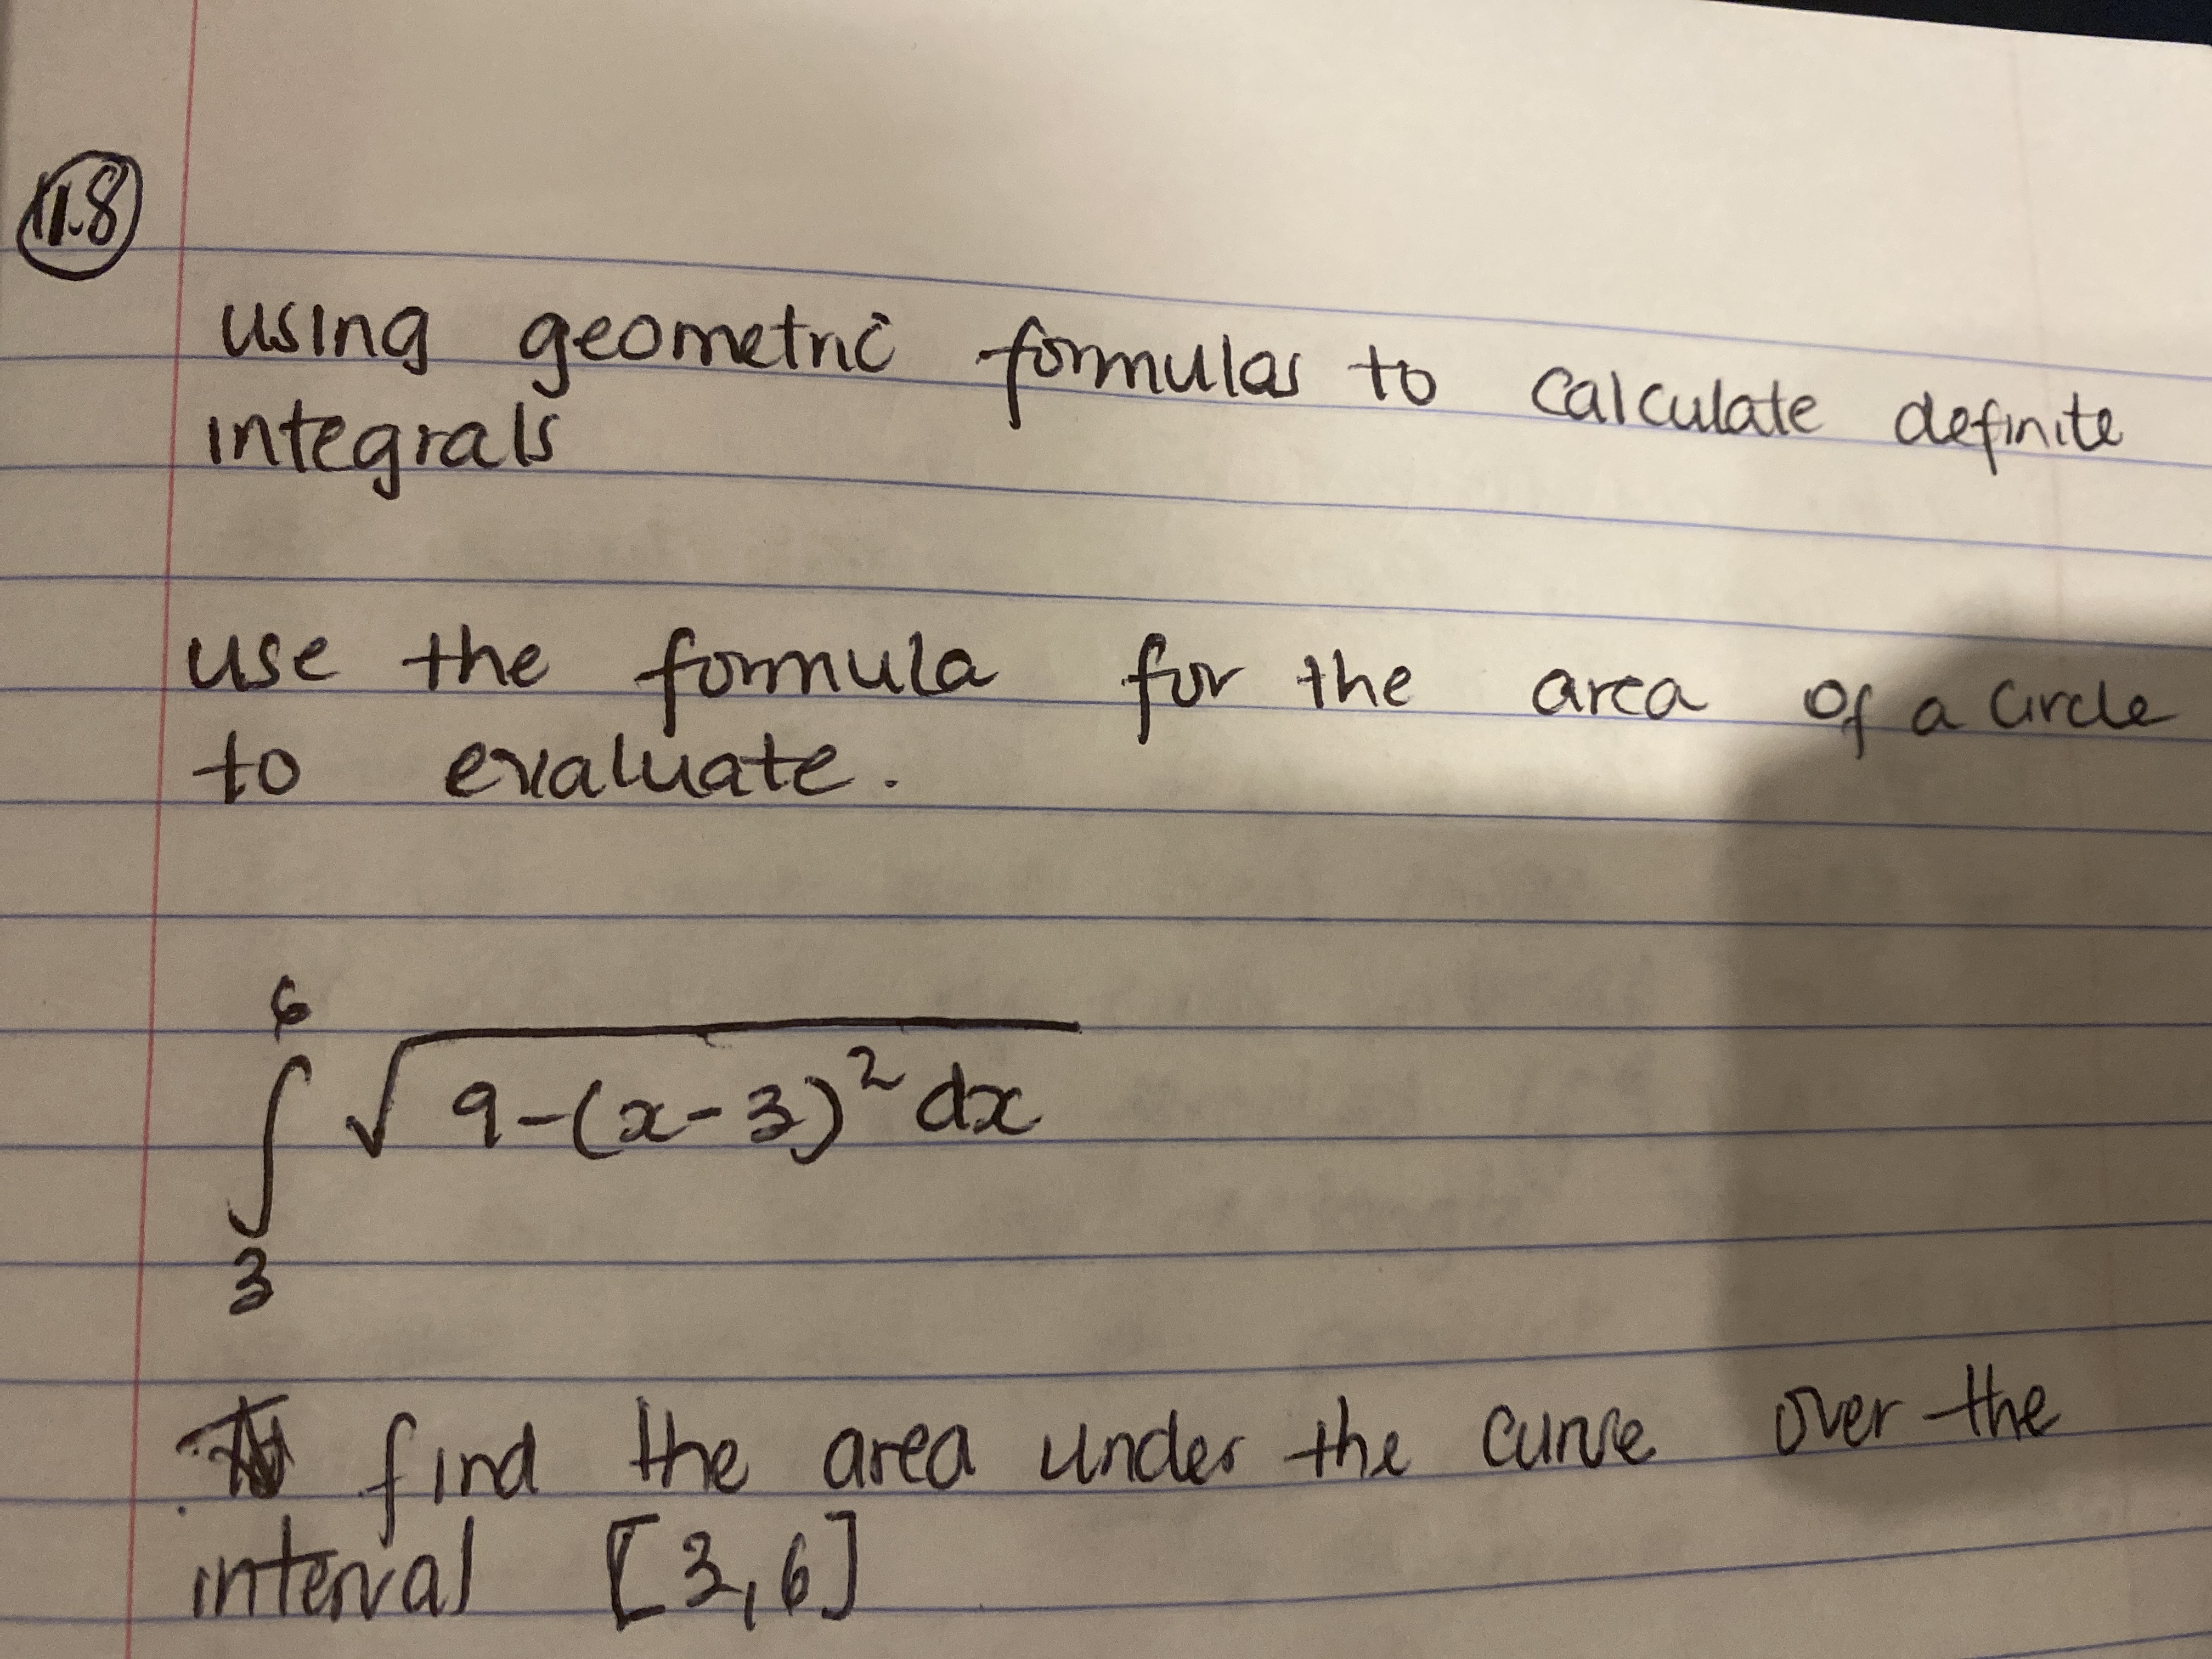 11.8
using geometric formulas to calculate definite
integrals
use the formula for the area of a circle
to evaluate.
6
∫ √9-(x-3)² dx
3
find the area under the curve over the
interval [3,6]